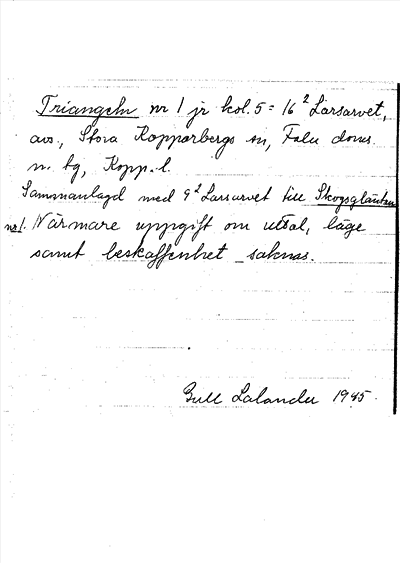 Triangeln nr 1 jr kol. 5 = 16² Larsarvet,
avs., Stora Kopparbergs sn, Falu doms.
n. tg, Kopp. l.
Sammanlagd med 9² Larsarvet till Skogsgläntan
nr 1. Närmare uppgift om uttal, läge
samt beskaffenhet saknas.
Gull Lalander 1945.